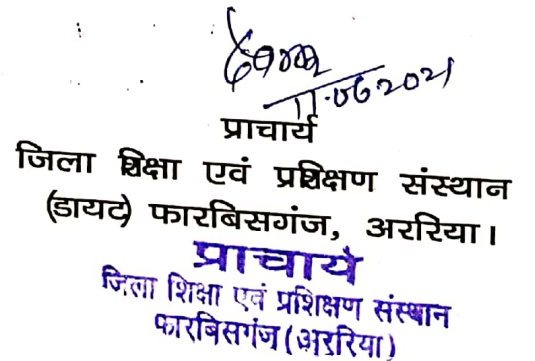 11.06.2021
प्राचार्य
जिला शिक्षा एवं प्रशिक्षण संस्थान
(डायट) फारबिसगंज, अररिया।
प्राचार्य
जिला शिक्षा एवं प्रशिक्षण संस्थान
फारबिसगंज (अररिया)